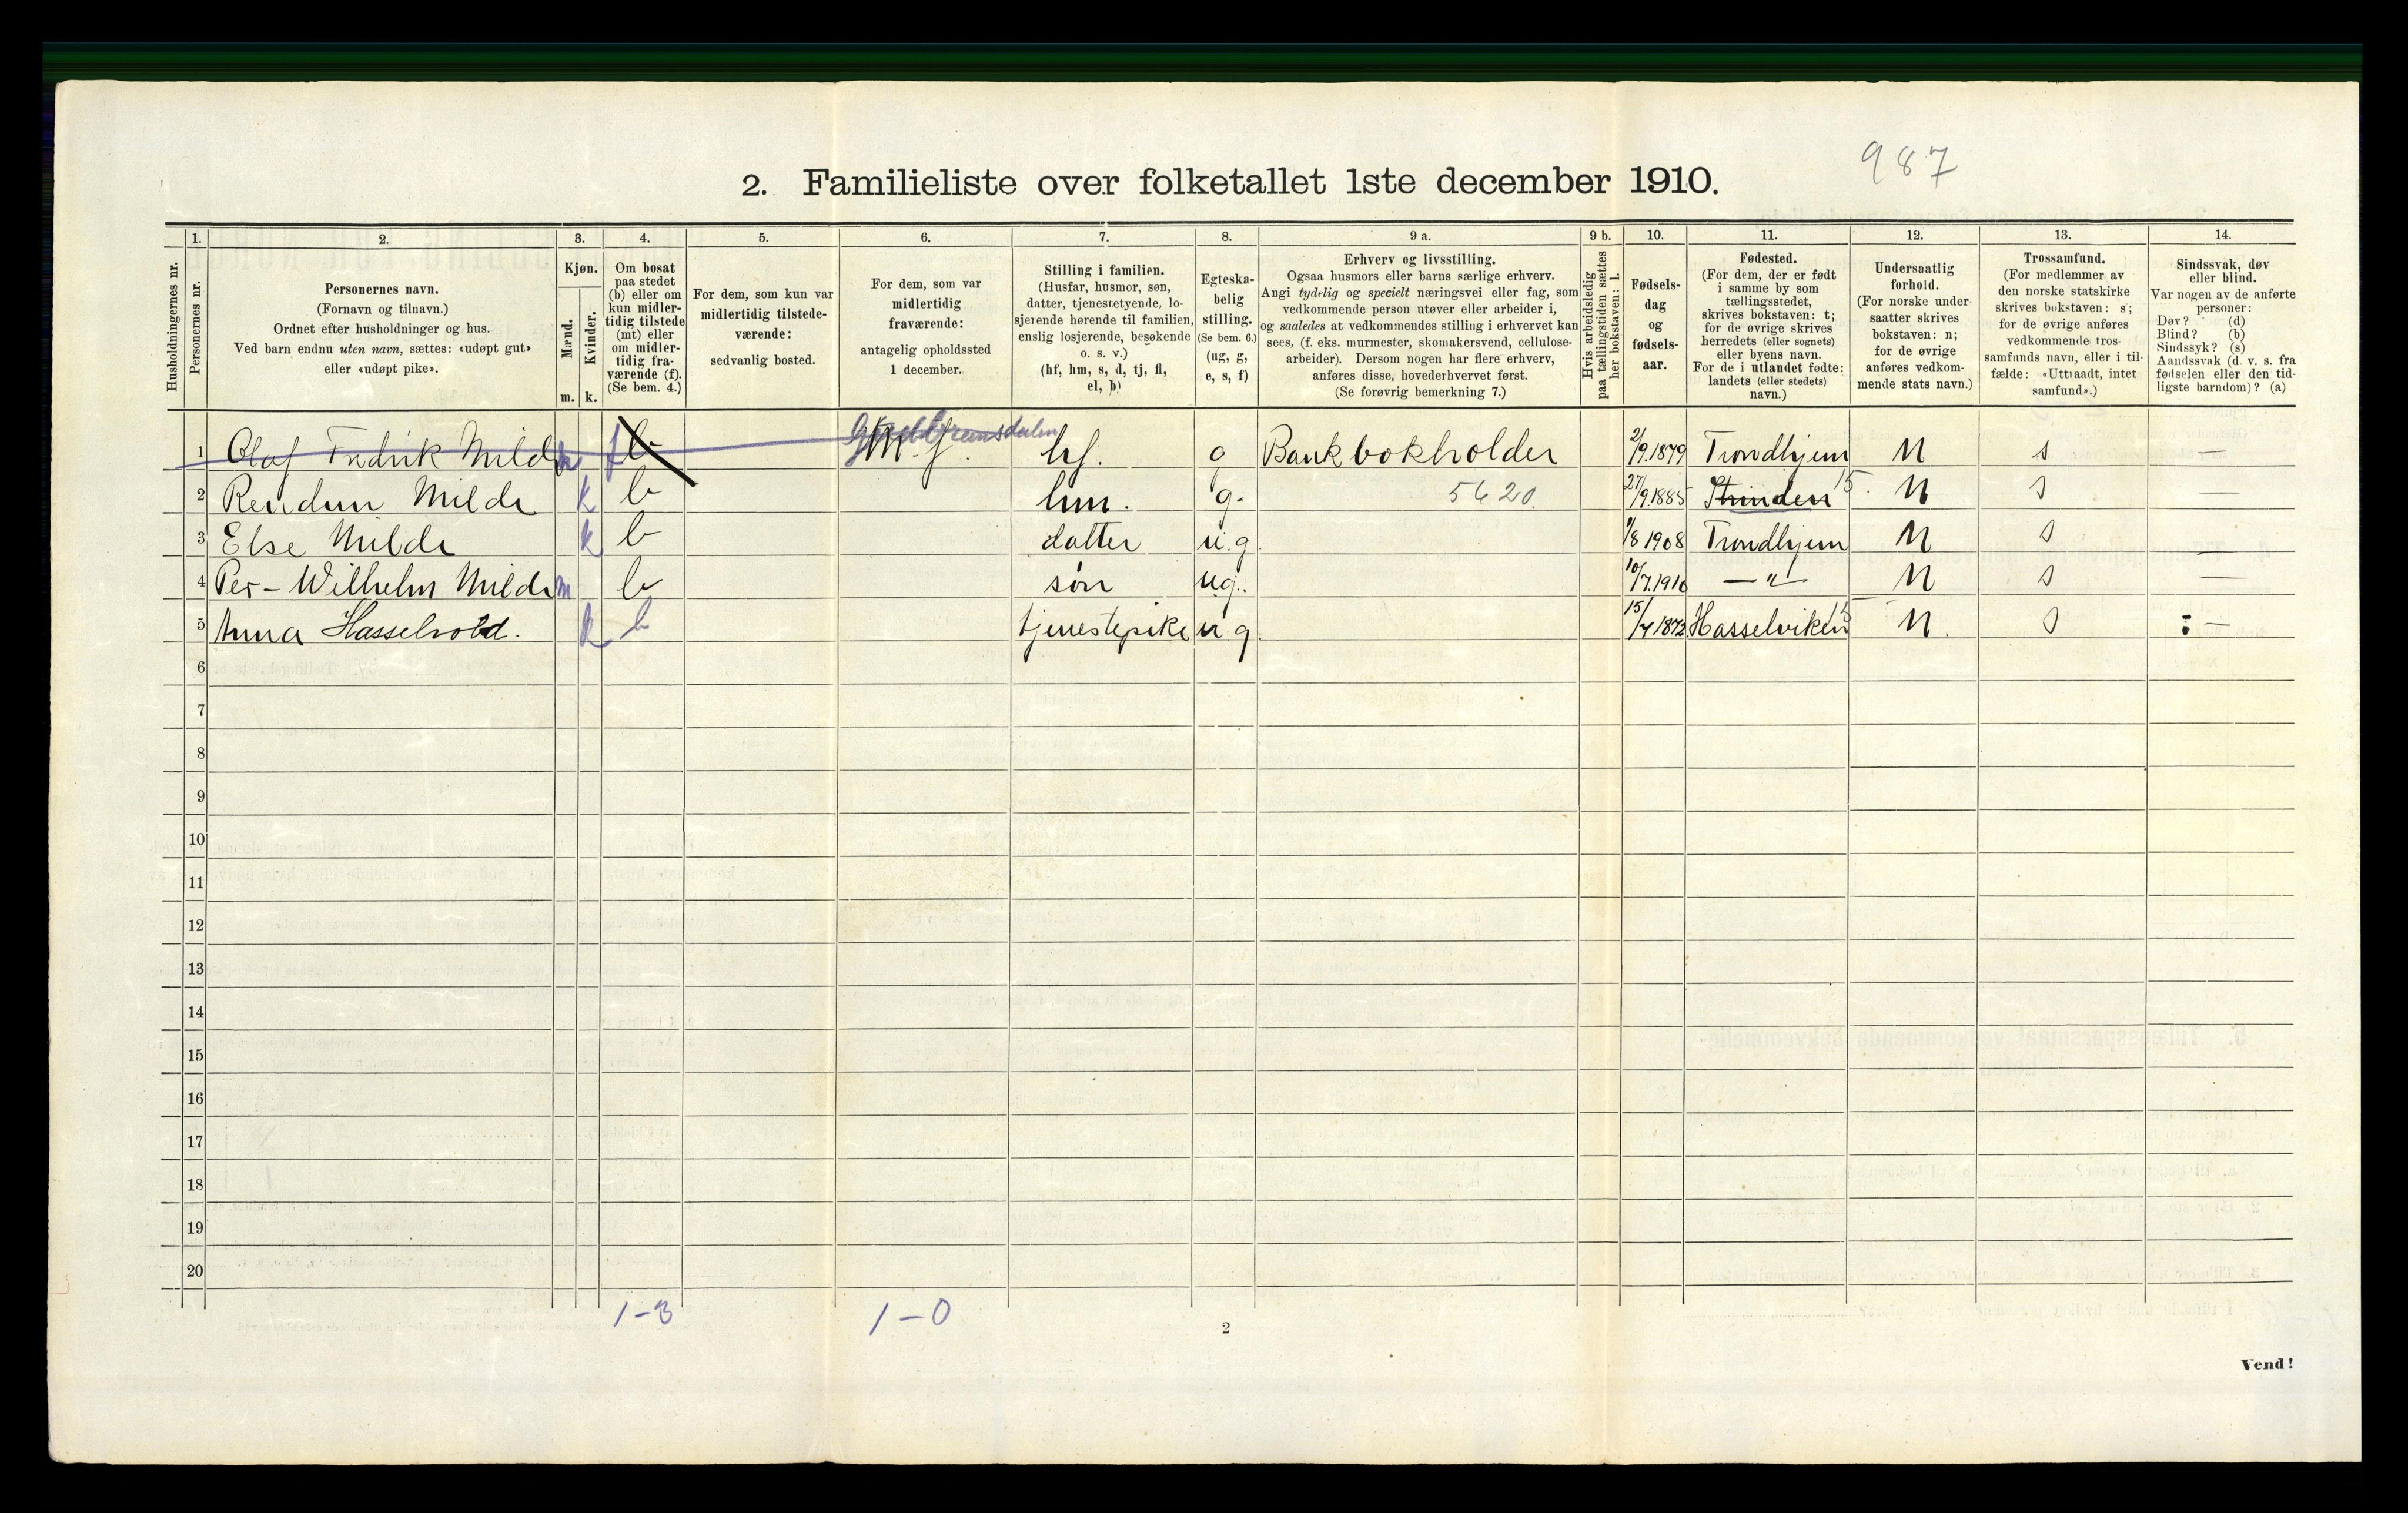 987
2. Familieliste over folketallet 1ste december 1910.
Husholdningernes nr.
1. Personernes nr.
2. Personernes navn.
(Fornavn og tilnavn.)
Ordnet efter husholdninger og hus.
Ved barn endnu uten navn, sættes: «udøpt gut»
eller «udøpt pike».
3. Kjøn.
Mænd. m.
Kvinder. k.
4. Om bosat
paa stedet
(b) eller om
kun midler-
tidig tilstede
(mt) eller
om midler-
tidig fra-
værende (f).
(Se bem. 4.)
5. For dem, som kun var
midlertidig tilstede-
værende:
sedvanlig bosted.
6. For dem, som var
midlertidig
fraværende:
antagelig opholdssted
1 december.
7. Stilling i familien.
(Husfar, husmor, søn,
datter, tjenestetyende, lo-
sjerende hørende til familien,
enslig losjerende, besøkende
o. s. v.)
(hf, hm, s, d, tj, fl,
el, b)
8. Egteska-
belig
stilling.
(Se bem. 6.)
(ug, g,
e, s, f)
9 a. Erhverv og livsstilling.
Ogsaa husmors eller barns særlige erhverv.
Angi tydelig og specielt næringsvei eller fag, som
vedkommende person utøver eller arbeider i,
og saaledes at vedkommendes stilling i erhvervet kan
sees, (f. eks. murmester, skomakersvend, cellulose-
arbeider). Dersom nogen har flere erhverv,
anføres disse, hovederhvervet først.
(Se forøvrig bemerkning 7.)
9 b. Hvis arbeidsledig
paa tællingstiden sættes
her bokstaven: l.
10. Fødsels-
dag
og
fødsels-
aar.
11. Fødested.
(For dem, der er født
i samme by som
tællingsstedet,
skrives bokstaven: t;
for de øvrige skrives
herredets (eller sognets)
eller byens navn.
For de i utlandet fødte:
landets (eller stedets)
navn.)
12. Undersaatlig
forhold.
(For norske under-
saatter skrives
bokstaven: n;
for de øvrige
anføres vedkom-
mende stats navn.)
13. Trossamfund.
(For medlemmer av
den norske statskirke
skrives bokstaven: s;
for de øvrige anføres
vedkommende tros-
samfunds navn, eller i til-
fælde: «Uttraadt, intet
samfund».)
14. Sindssvak, døv
eller blind.
Var nogen av de anførte
personer:
Døv? (d)
Blind? (b)
Sindssyk? (s)
Aandssvak (d. v. s. fra
fødselen eller den tid-
ligste barndom)? (a)
1 Olaf Fredrik Milde m f b Gudbrandsdalen hf. g Bankbokholder 2/9.1879 Trondhjem N s —
2 Milde k b hm. g. 5620. 27/9.1885 Strinden 15. N s —
3 Else Milde k b datter u.g. 1/8 1908 Trondhjem N s —
4 Per-Wilhelm Milde m b søn ug. 10/7.1910 — " — N s —
5 Anna Hasselvold. k b tjenestepike u g. 15/7 1872 Hasselviken 15 N. s —
6
7
8
9
10
11
12
13
14
15
16
17
18
19
20
1-3 1-0
2
Vend!